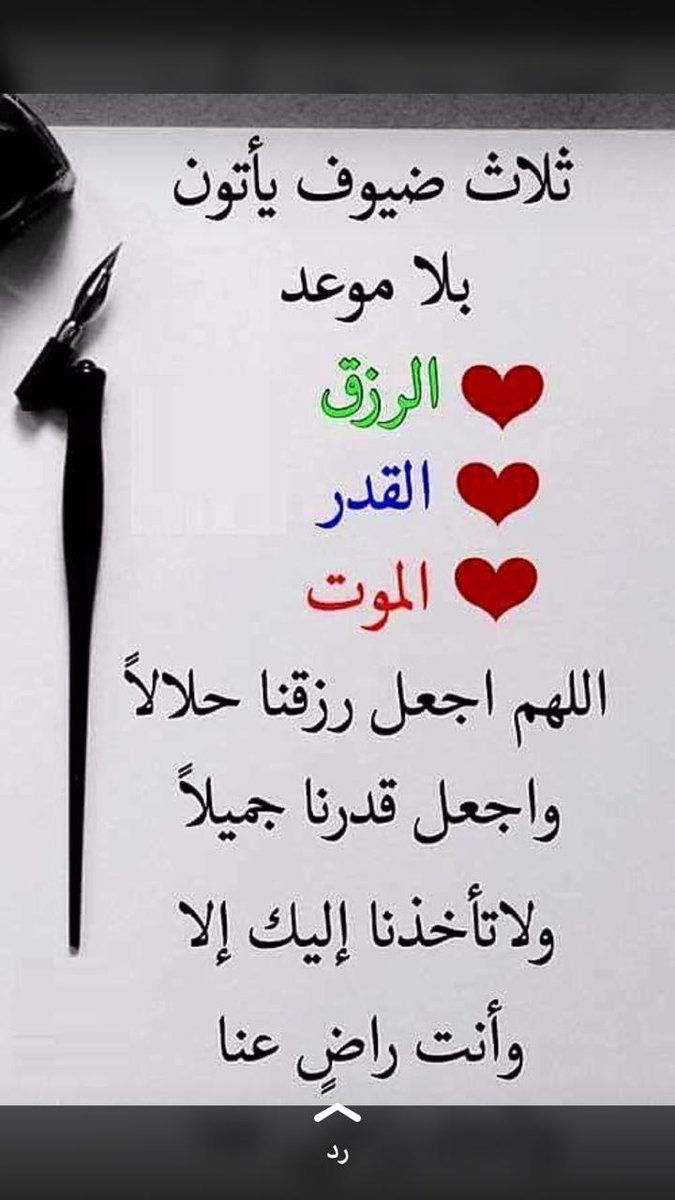 ثلاث ضيوف يأتون
بلا موعد
الرزق
القدر
الموت
اللهم اجعل رزقنا حلالاً
واجعل قدرنا جميلاً
ولاتأخذنا إليك إلا
وأنت راضٍ عنا
رد